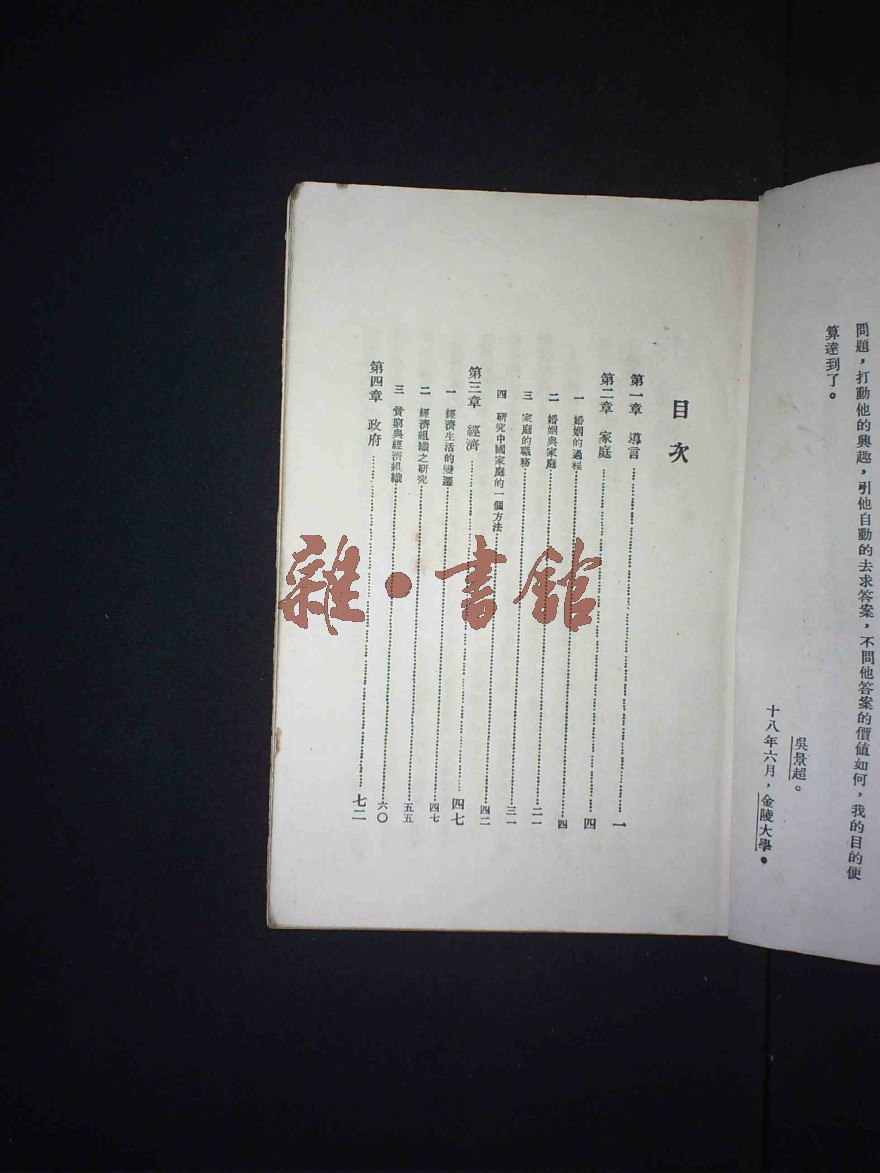 問題，打動他的興趣，引他自動的去求答案，不問他答案的價值如何，我的目的便
算達到了。
吳景超。
十八年六月，金陵大學。
目次
第一章 導言 一
第二章 家庭 四
一 婚姻的過程 四
二 婚姻與家庭 二一
三 家庭的職務 三一
四 研究中國家庭的一個方法 四二
第三章 經濟 四七
一 經濟生活的變遷 四七
二 經濟組織之研究 五五
三 貧窮與經濟組織 六〇
第四章 政府 七二
雜·書館